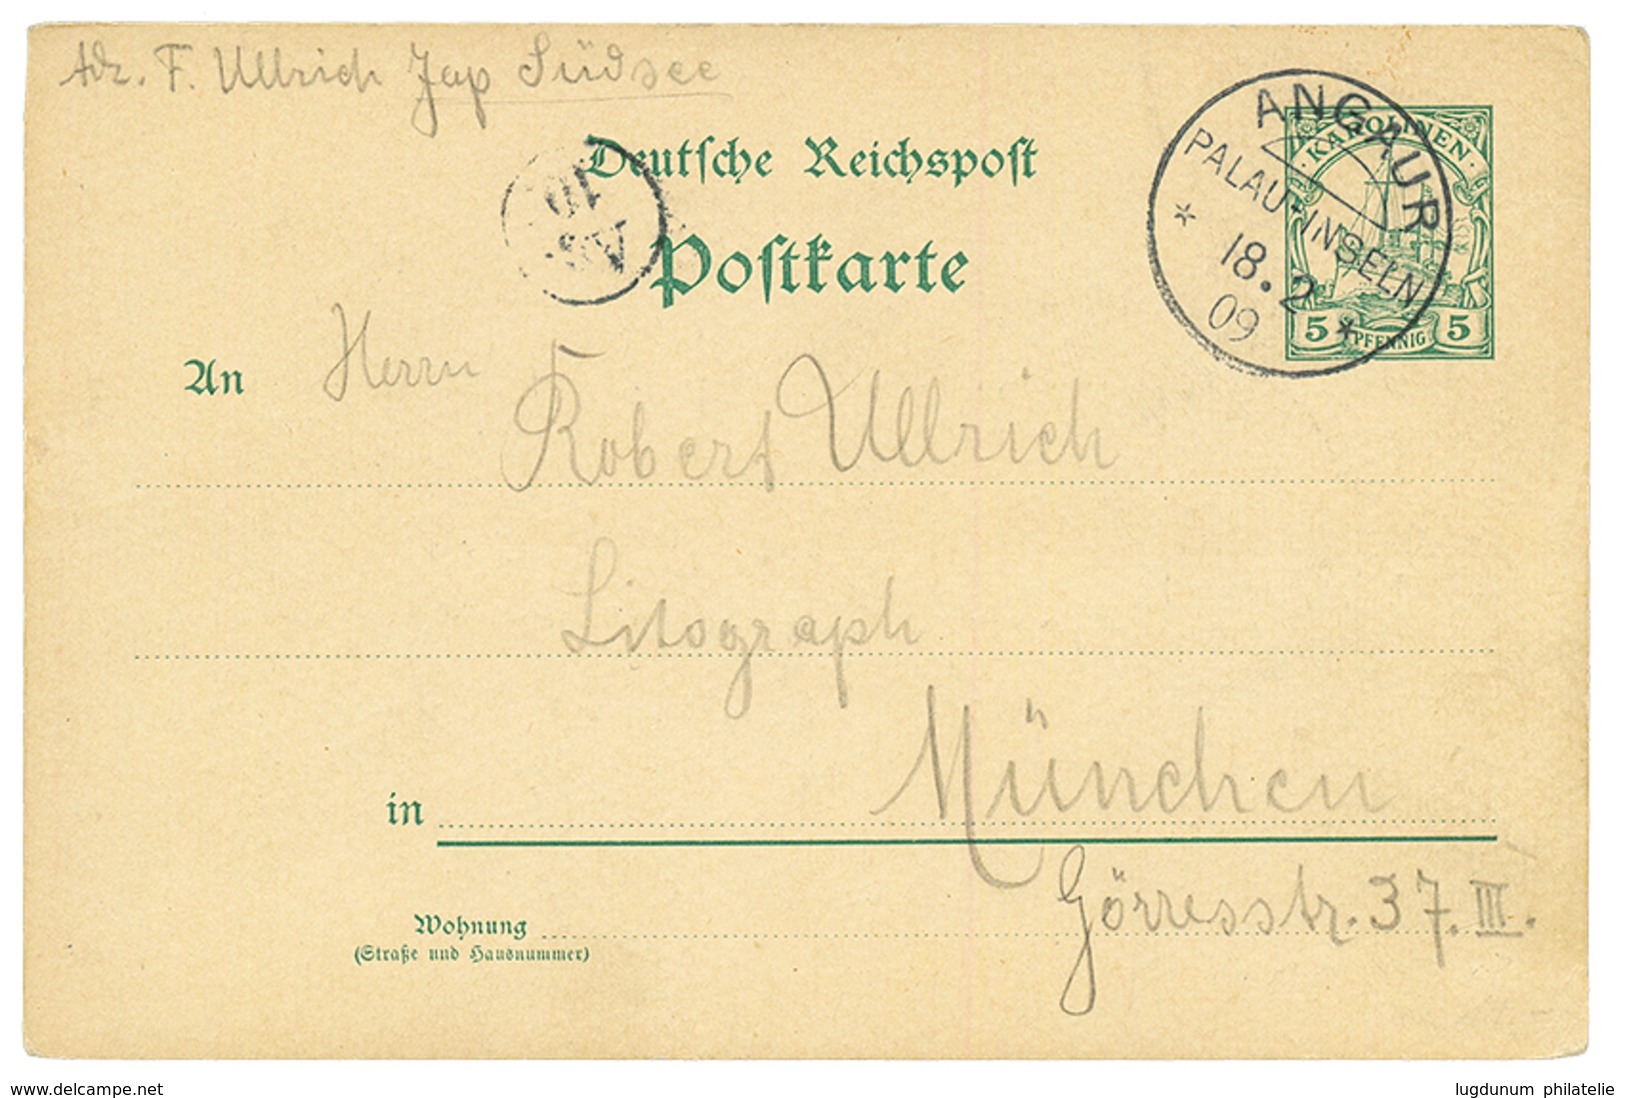 Adr. F. Ullrich Jap Südsee
Deutsche Reichspost
Postkarte
ANGAUR
PALAU-INSELN
18.2
09
KAROLINEN
5 PFENNIG 5
10
An Herrn
Robert Ullrich
Litograph
in München
Görresstr. 37. III.
Wohnung
(Straße und Hausnummer)
www.delcampe.net
lugdunum philatelie